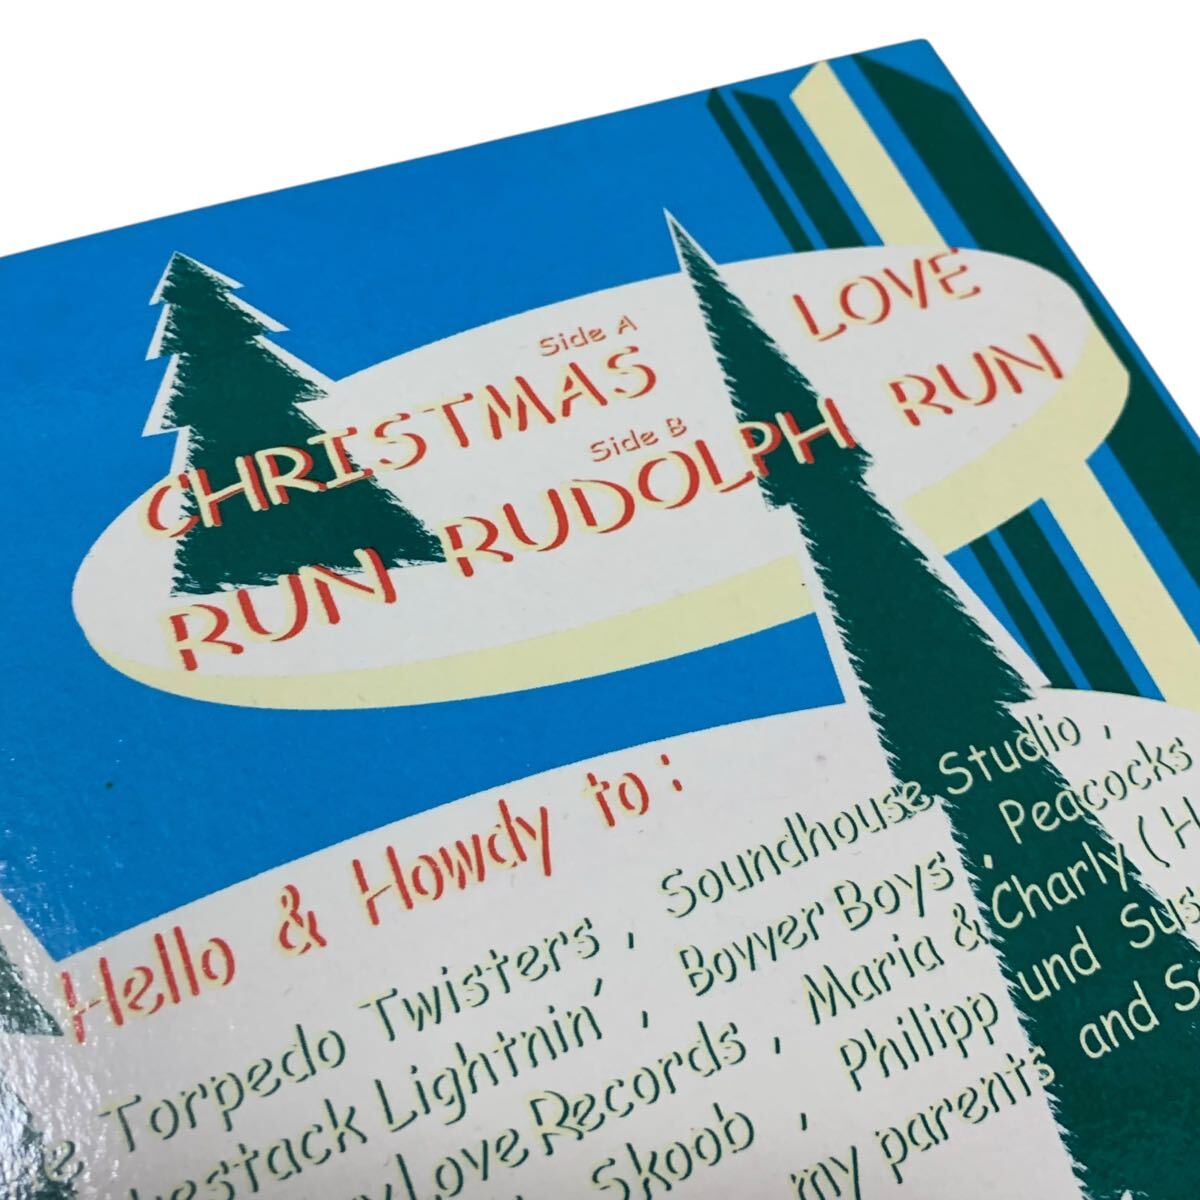 Side A
CHRISTMAS LOVE
Side B
RUN RUDOLPH RUN
Hello & Howdy to :
Torpedo Twisters , Soundhouse Studio ,
Lightnin' , Bovver Boys , Peacocks
Love Records , Maria & Charly ( H
Skoob , Philipp und Sus
my parents and S